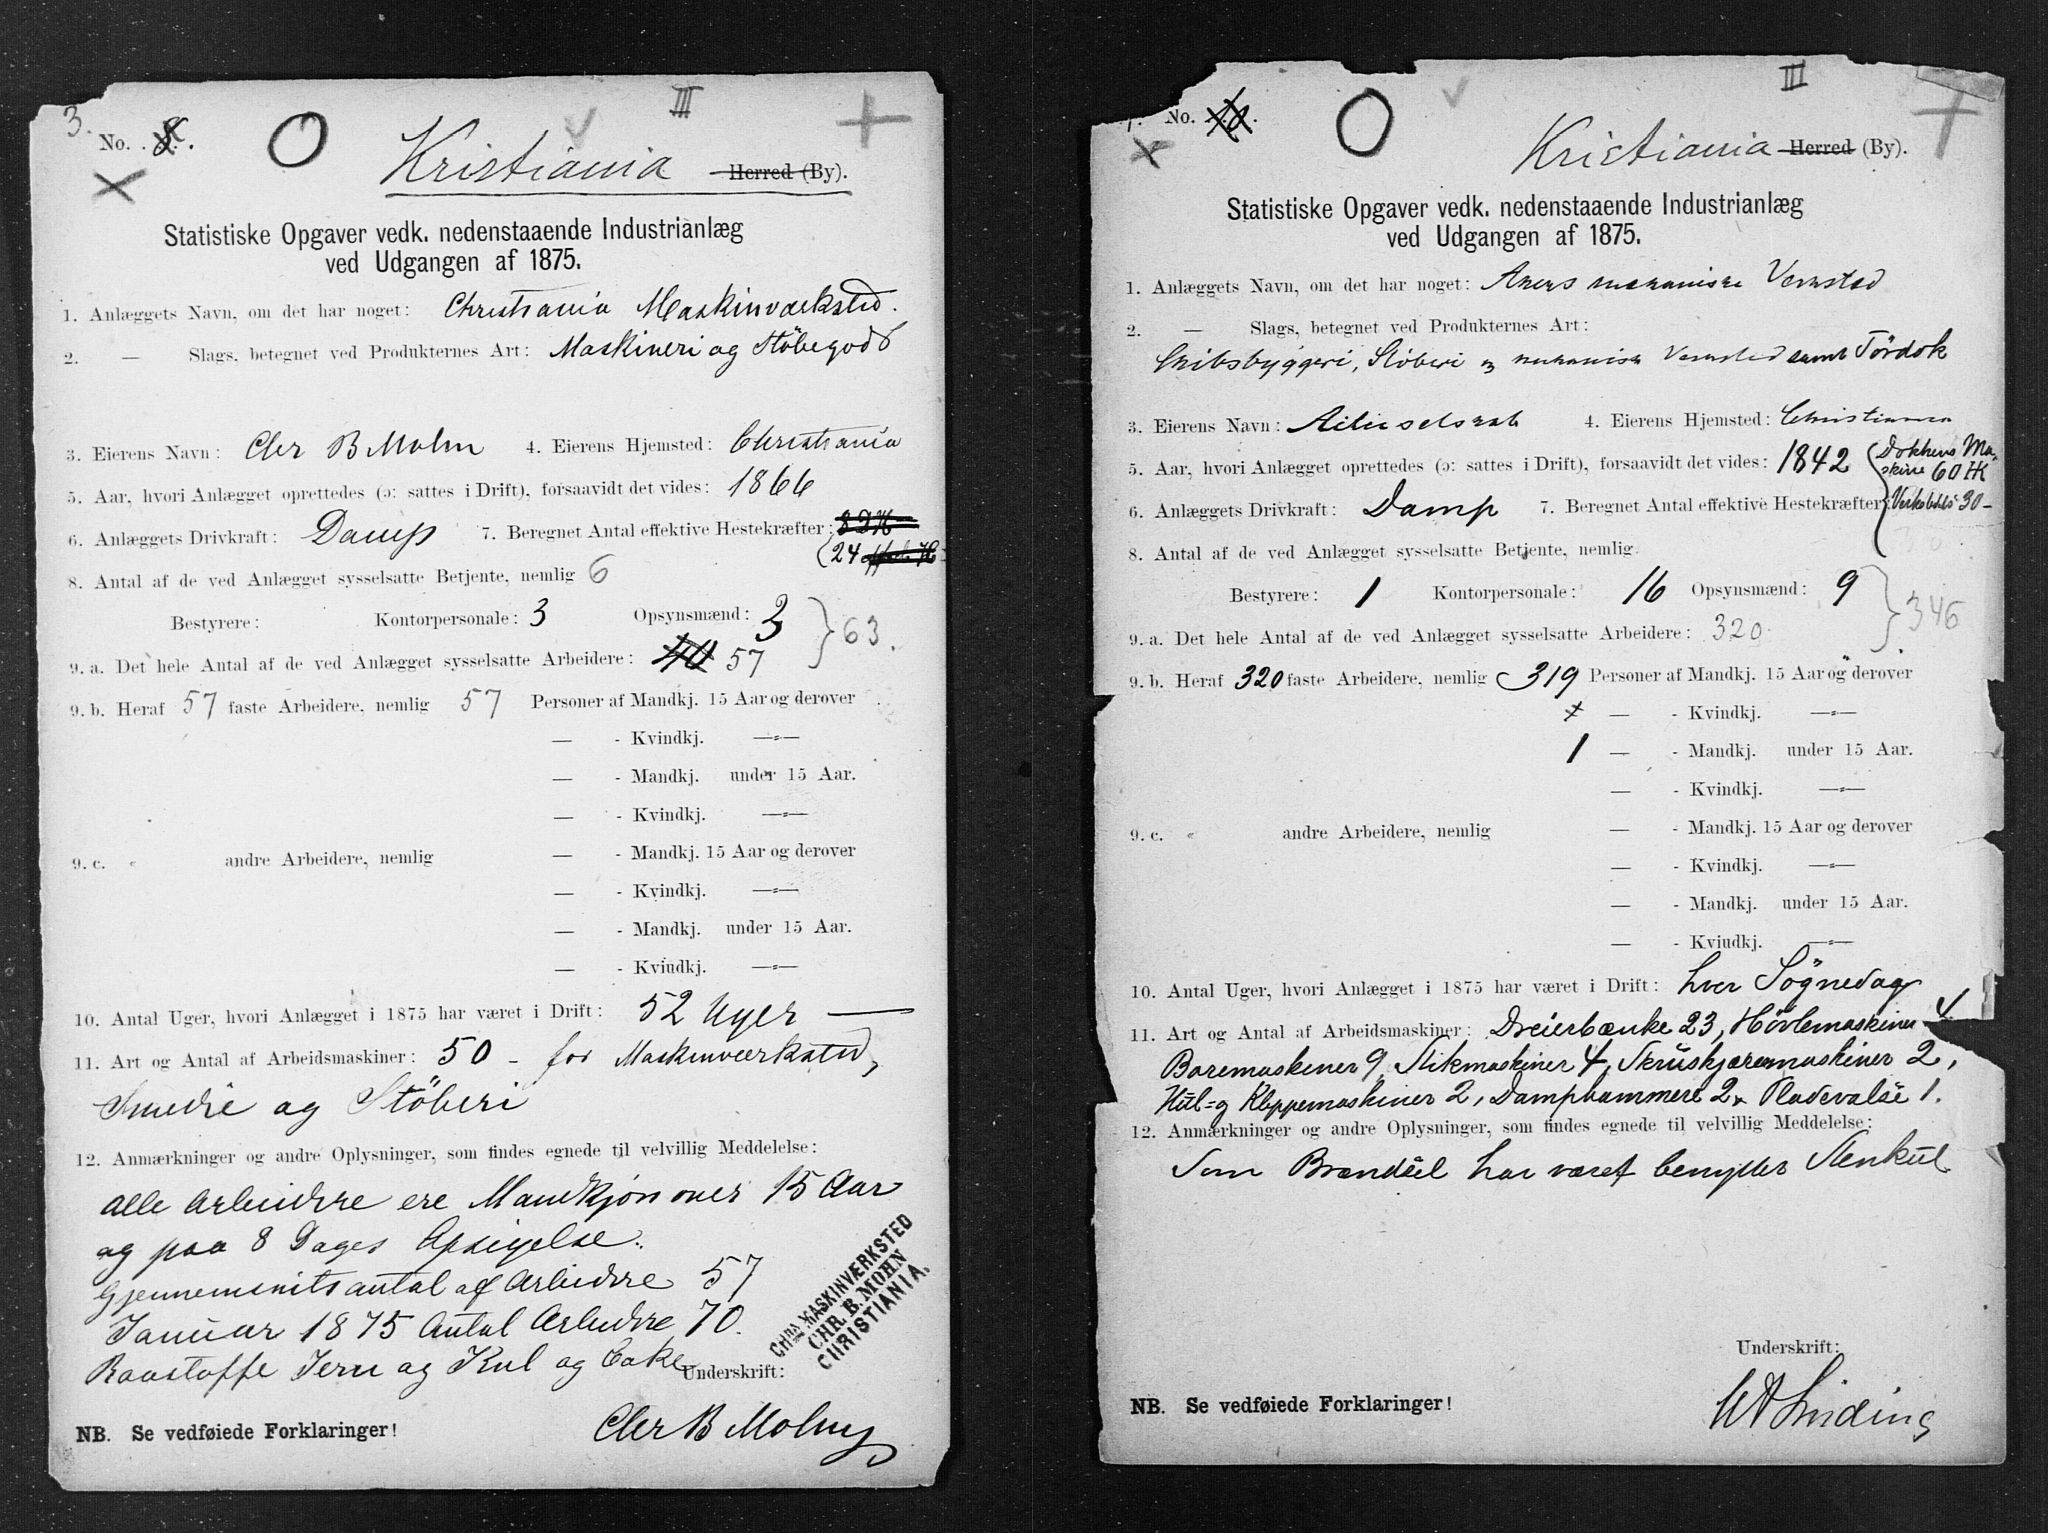 3. No. 8.
III
Kristiania Herred (By).
Statistiske Opgaver vedk. nedenstaaende Industrianlæg
ved Udgangen af 1875.
1. Anlæggets Navn, om det har noget: Christiania Maskinværksted.
2. — Slags, betegnet ved Produkternes Art: Maskineri og Stöbegods
3. Eierens Navn: Chr B Mohn 4. Eierens Hjemsted: Christiania
5. Aar, hvori Anlægget oprettedes (ɔ: sattes i Drift), forsaavidt det vides: 1866
6. Anlæggets Drivkraft: Damp 7. Beregnet Antal effektive Hestekræfter: 8 DH
(24 effect. H
8. Antal af de ved Anlægget sysselsatte Betjente, nemlig 6
Bestyrere: Kontorpersonale: 3 Opsynsmænd: 3 } 63.
9. a. Det hele Antal af de ved Anlægget sysselsatte Arbeidere: 40 57
9. b. Heraf 57 faste Arbeidere, nemlig 57 Personer af Mandkj. 15 Aar og derover
— - Kvindkj. —„—
— - Mandkj. under 15 Aar.
— - Kvindkj. —„—
9. c. „ andre Arbeidere, nemlig — - Mandkj. 15 Aar og derover
— - Kvindkj. —„—
— - Mandkj. under 15 Aar.
— - Kvindkj. —„—
10. Antal Uger, hvori Anlægget i 1875 har været i Drift: 52 Uger —
11. Art og Antal af Arbeidsmaskiner: 50 - for Maskinværksted,
Smedie og Stöberi
12. Anmærkninger og andre Oplysninger, som findes egnede til velvillig Meddelelse:
Alle Arbeidere ere Mandkjön over 15 Aar
og paa 8 Dages Opsigelse.
Gjennemsnitsantal af Arbeidere 57
Januar 1875 Antal Arbeidere 70.
Raastoffe Jern og Kul og Coke
CHRA MASKINVÆRKSTED
CHR. B. MOHN
CHRISTIANIA.
Underskrift:
Chr B Mohn
NB. Se vedføiede Forklaringer!
No.
III
Kristiania Herred (By).
Statistiske Opgaver vedk. nedenstaaende Industrianlæg
ved Udgangen af 1875.
1. Anlæggets Navn, om det har noget: Akers mekaniske Verksted
2. — Slags, betegnet ved Produkternes Art:
Skibsbyggeri, Stöberi og mekanisk Verksted samt Tördok
3. Eierens Navn: Actieselskab 4. Eierens Hjemsted: Christiania
5. Aar, hvori Anlægget oprettedes (ɔ: sattes i Drift), forsaavidt det vides: 1842 { Dokkens Ma-
skine 60 HK
6. Anlæggets Drivkraft: Damp 7. Beregnet Antal effektive Hestekræfter: 30 -
8. Antal af de ved Anlægget sysselsatte Betjente, nemlig
Bestyrere: 1 Kontorpersonale: 16 Opsynsmænd: 9 } 346
9. a. Det hele Antal af de ved Anlægget sysselsatte Arbeidere: 320
9. b. Heraf 320 faste Arbeidere, nemlig 319 Personer af Mandkj. 15 Aar og derover
— - Kvindkj. —„—
1 — - Mandkj. under 15 Aar.
— - Kvindkj. —„—
9. c. „ andre Arbeidere, nemlig — - Mandkj. 15 Aar og derover
— - Kvindkj. —„—
— - Mandkj. under 15 Aar.
— - Kvindkj. —„—
10. Antal Uger, hvori Anlægget i 1875 har været i Drift: hver Sögnedag
11. Art og Antal af Arbeidsmaskiner: Dreierbænke 23, Hövlemaskiner 4
Boremaskiner 9, Stikmaskiner 4, Skruskjæremaskiner 2,
Hul= og Klippemaskiner 2, Damphammere 2, Pladevalse 1.
12. Anmærkninger og andre Oplysninger, som findes egnede til velvillig Meddelelse:
Som Brændsel har været benyttet Stenkul
Underskrift:
NB. Se vedføiede Forklaringer!